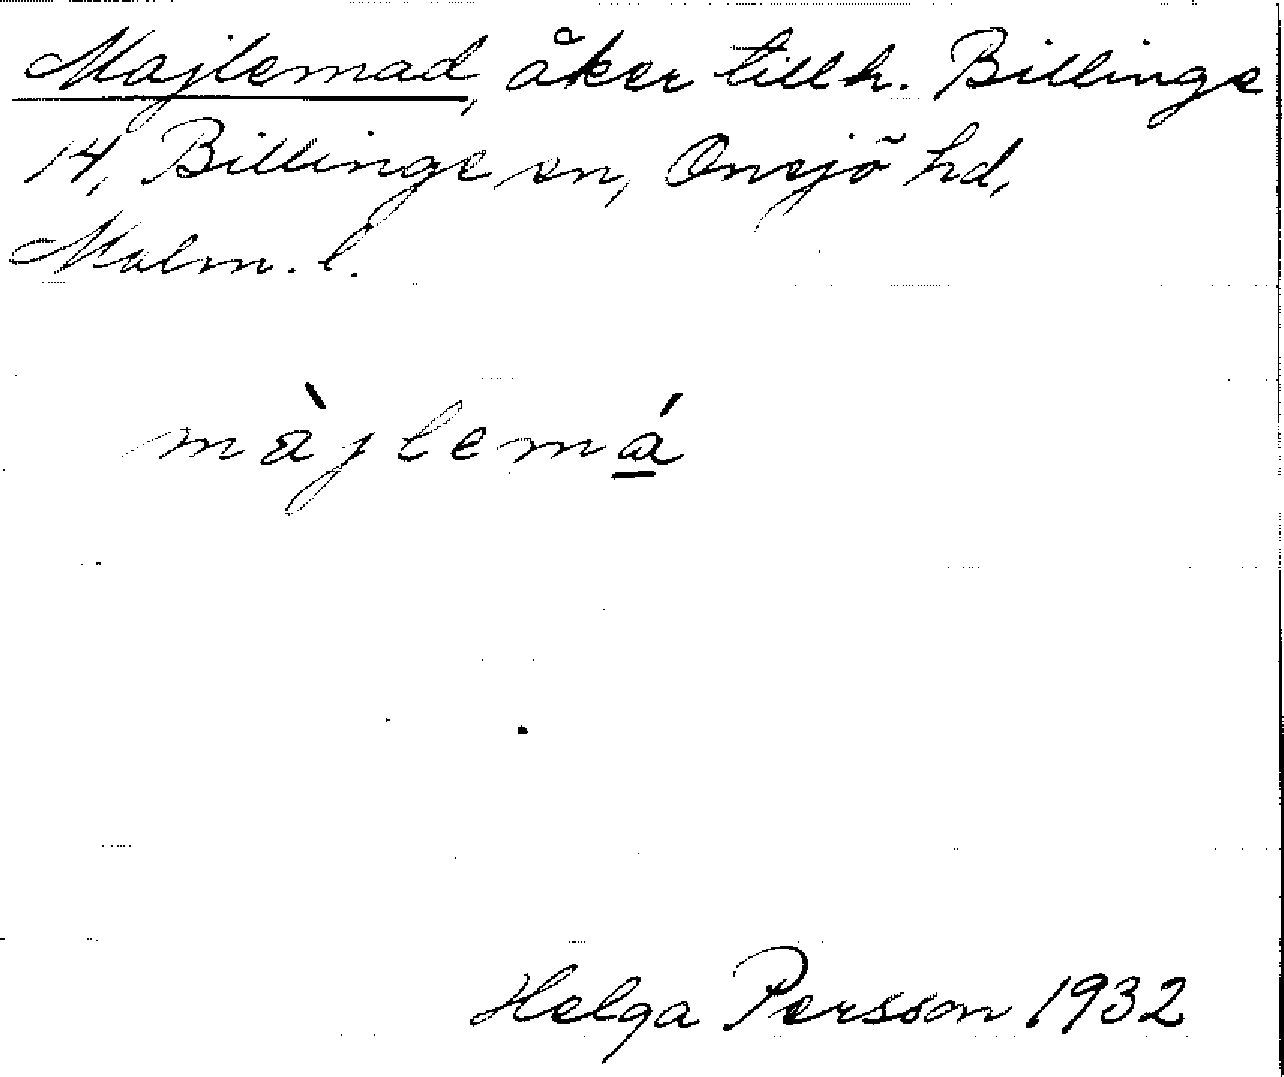 Majlemad, åker tillh. Billinge
14, Billinge sn, Onsjö hd,
Malm. l.
màjlemá̱
Helga Persson 1932